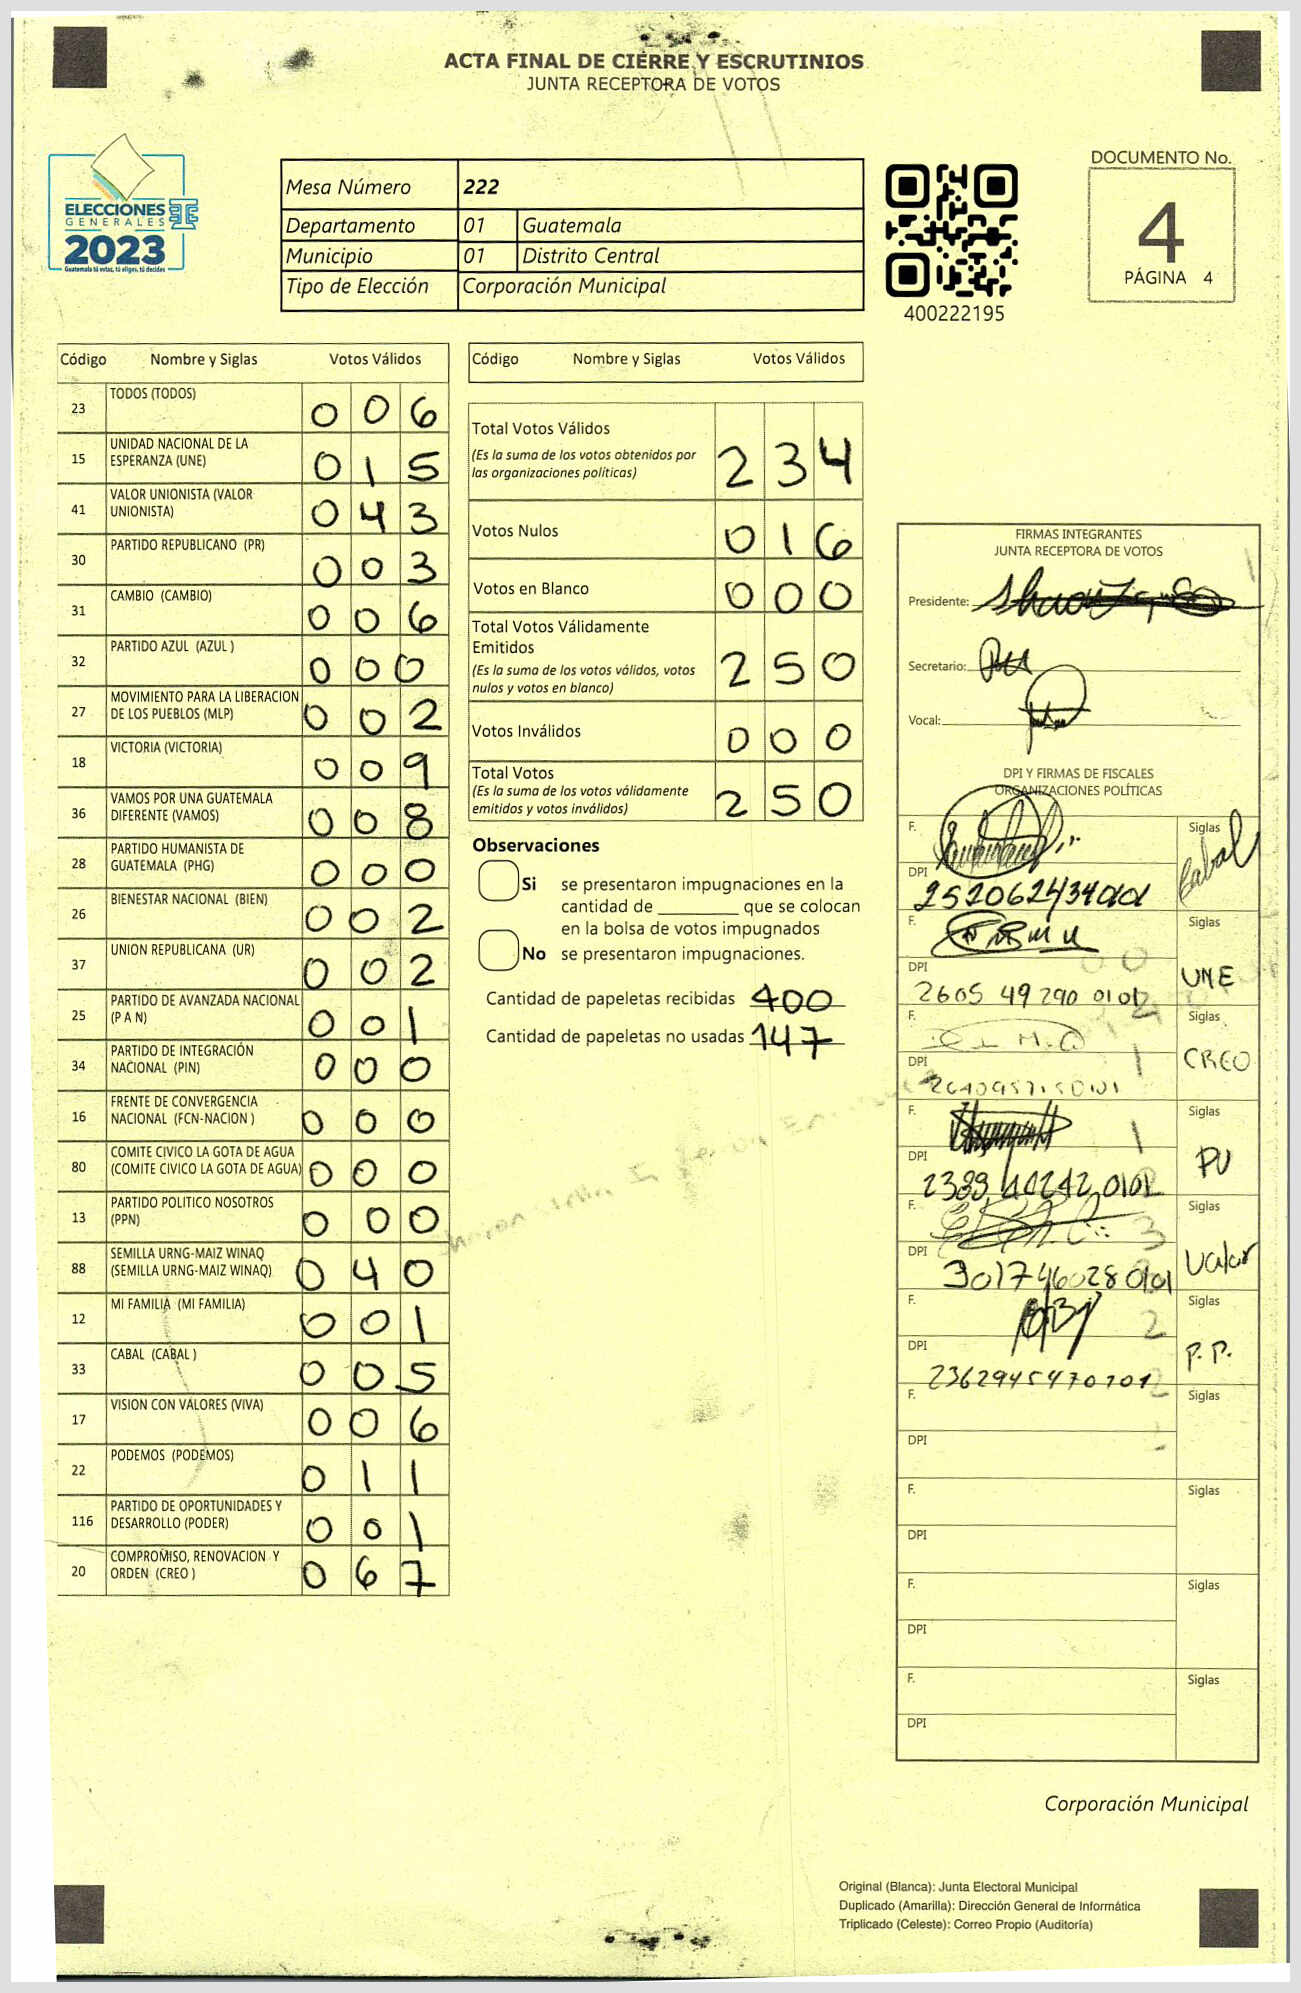 ACTA FINAL DE CIERRE Y ESCRUTINIOS
JUNTA RECEPTORA DE VOTOS
ELECCIONES
GENERALES
2023
Guatemala tú votas, tú eliges, tú decides
Mesa Número 222
Departamento 01 Guatemala
Municipio 01 Distrito Central
Tipo de Elección Corporación Municipal
400222195
DOCUMENTO No.
4
PÁGINA 4
Código Nombre y Siglas Votos Válidos
23 TODOS (TODOS) 0 0 6
15 UNIDAD NACIONAL DE LA
ESPERANZA (UNE) 0 1 5
41 VALOR UNIONISTA (VALOR
UNIONISTA) 0 4 3
30 PARTIDO REPUBLICANO (PR) 0 0 3
31 CAMBIO (CAMBIO) 0 0 6
32 PARTIDO AZUL (AZUL ) 0 0 0
27 MOVIMIENTO PARA LA LIBERACION
DE LOS PUEBLOS (MLP) 0 0 2
18 VICTORIA (VICTORIA) 0 0 9
36 VAMOS POR UNA GUATEMALA
DIFERENTE (VAMOS) 0 0 8
28 PARTIDO HUMANISTA DE
GUATEMALA (PHG) 0 0 0
26 BIENESTAR NACIONAL (BIEN) 0 0 2
37 UNION REPUBLICANA (UR) 0 0 2
25 PARTIDO DE AVANZADA NACIONAL
(P A N) 0 0 1
34 PARTIDO DE INTEGRACIÓN
NACIONAL (PIN) 0 0 0
16 FRENTE DE CONVERGENCIA
NACIONAL (FCN-NACION ) 0 0 0
80 COMITE CIVICO LA GOTA DE AGUA
(COMITE CIVICO LA GOTA DE AGUA) 0 0 0
13 PARTIDO POLITICO NOSOTROS
(PPN) 0 0 0
88 SEMILLA URNG-MAIZ WINAQ
(SEMILLA URNG-MAIZ WINAQ) 0 4 0
12 MI FAMILIA (MI FAMILIA) 0 0 1
33 CABAL (CABAL ) 0 0 5
17 VISION CON VALORES (VIVA) 0 0 6
22 PODEMOS (PODEMOS) 0 1 1
116 PARTIDO DE OPORTUNIDADES Y
DESARROLLO (PODER) 0 0 1
20 COMPROMISO, RENOVACION Y
ORDEN (CREO ) 0 6 7
Código Nombre y Siglas Votos Válidos
Total Votos Válidos
(Es la suma de los votos obtenidos por
las organizaciones políticas) 2 3 4
Votos Nulos 0 1 6
Votos en Blanco 0 0 0
Total Votos Válidamente
Emitidos
(Es la suma de los votos válidos, votos
nulos y votos en blanco) 2 5 0
Votos Inválidos 0 0 0
Total Votos
(Es la suma de los votos válidamente
emitidos y votos inválidos) 2 5 0
Observaciones
Si se presentaron impugnaciones en la
cantidad de ________ que se colocan
en la bolsa de votos impugnados
No se presentaron impugnaciones.
Cantidad de papeletas recibidas 400
Cantidad de papeletas no usadas 147
FIRMAS INTEGRANTES
JUNTA RECEPTORA DE VOTOS
Presidente:
Secretario:
Vocal:
DPI Y FIRMAS DE FISCALES
ORGANIZACIONES POLÍTICAS
F. Siglas
Cabal
DPI
F. Siglas
UNE
DPI 2605 49 290 0101
F. Siglas
CREO
DPI
F. Siglas
PU
DPI 2389 40242 0101
F. Siglas
Valor
DPI 301746028 0101
F. Siglas
P.P.
DPI
F. Siglas
DPI
F. Siglas
DPI
F. Siglas
DPI
F. Siglas
DPI
Corporación Municipal
Original (Blanca): Junta Electoral Municipal
Duplicado (Amarilla): Dirección General de Informática
Triplicado (Celeste): Correo Propio (Auditoría)